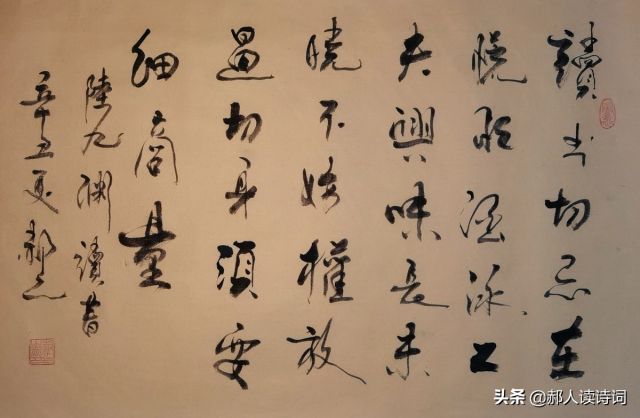 讀書切忌在
慌忙涵泳工
夫興味長未
曉不妨權放
過切身須要
細商量
陸九淵讀書
辛丑夏郝
头条 @郝人读诗词